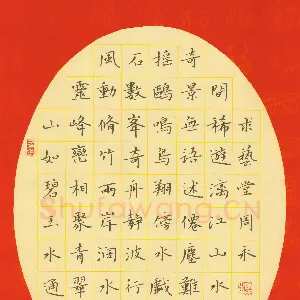 山如碧玉水通
靈峰巒相聚青翠
風動脩竹兩岸潤水
石數峯奇舟靜波行
搖鷗鳴鳥翔傍水戲
奇景無語述僊塵難
間稀遊漓江山水
求藝堂周永
Shufawang.CN